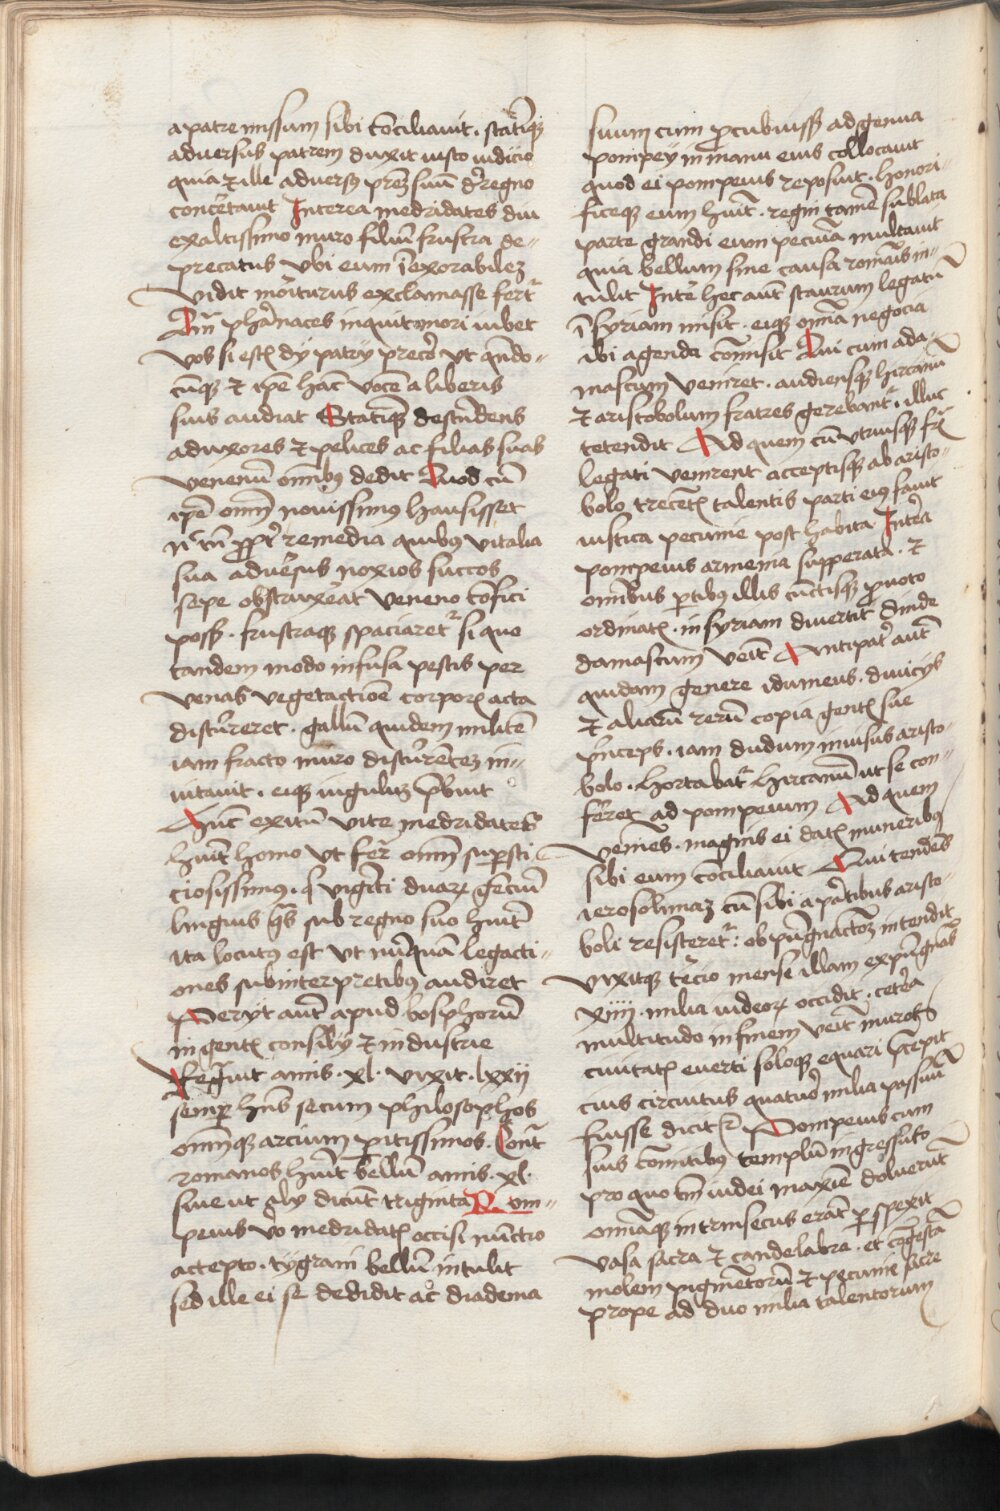 a patre missum sibi co̅ciliauit . stati̅qȝ
aduersus patrem duxit iusto iudicio
quia & ille aduersꝰ pr̅eȝ suu̅ de̅ regno
concertauit Interea medridates diu
exaltissimo muro filiu̅ frustra de=
precatus vbi eum i̅exorabileȝ
vidit moriturus exclamasse fert᷑
Qm̅ pharnaces inquit mori iubet
vos si estꝭ dij patrij precor vt qn̅do=
cu̅qȝ & ip̅e hac̅ voce̅ a liberis
suis audiat Statiqȝ descende̅s
ad uxores & pelices ac filias suas
venenu̅ om̅ibꝰ dedit Quod cu̅
ip̅e om̅i̅ nouissimꝰ hausisset
n̅ t̅n ꝓpt̅ remedia quibꝰ vitalia
sua aduersus noxios succos
sepe obstruxerat veneno co̅fici
poss̅ . frustraqȝ spaciaret᷑ si quo
tandem modo infusa pestis per
venas vegetactio̅e corporꝭ acta
discurreret . gallu̅ quidem milite̅
iam fracto muro discurre̅teȝ in=
uitauit . eiqȝ iuguluȝ p̅buit
Hu̅c exitu̅ vite medridates
huit̅ homo vt fert᷑ om̅i̅ sup̅sti=
ciosissimꝰ . q̅ viginti duarꝝ gentiu̅
linguis q̅s sub regno suo huit̅
ita locutꝰ est vt nu̅quā legacti=
ones sub interpretibꝰ audiret
Perijt aut̅ apud bosphoru̅
ingentꝭ consilij & industrie
Regnuit annis . xl . vixit . lxxij
semp̅ hn̅s secum philosophos
om̅i̅qȝ arcium ꝑitissimos . Contr̅
romanos huit̅ bellu̅ annis . xl .
siue ut alij dicu̅t triginta Pom=
peius v̅o medridatꝭ occisi nu̅ctio
accepto . tygrani bellu̅ intulit
sed ille ei se dedidit ac diadema
suum cum ꝓcubuiss̅ ad genua
pompey in manu eius collocauit
quod ei pompeius reposuit . honori=
ficeqȝ eum huit̅ . regni tame̅ sublata
parte grandi eum pecu̅ia multauit
quia bellum sine causa roma̅is in=
tulit Inter hec aut̅ staurum legatu̅
i̅ syriam misit . eiqȝ om̅ia negocia
ibi agenda co̅misit Qui cum ada=
mascum veniret . audiensqȝ hircanu̅
& aristobolum fratres gereba̅t᷑ . illuc
tetendit Ad quem cu̅ vtriusqȝ fr̅i
legati venirent acceptisqȝ ab aristo=
bolo trecentꝭ talentis parti eiꝰ fauit
iustica pecunie post habita Intera
pompeius armenia supperata . &
om̅ibus ꝑtibus illis cu̅ctisqȝ ꝓ uoto
ordinatꝭ . in syriam diuertit deinde
damascum veit̅ Antipater aut̅
quidam genere idumeus . diuicijs
& aliaru̅ reru̅ copia gentꝭ sue
princeps . iam dudum inuisus aristo=
bolo . hortabat᷑ hircanu̅ ut se con=
ferret ad pompeium Ad quem
venies . magnis ei datꝭ muneribꝰ
sibi eum conciliauit Qui tende̅s
ierosolimaȝ cu̅ sibi a ꝑtibus aristo=
boli resisteret᷑ : obpu̅gnacto̅ȝ intendit
vixitqȝ tercio mense illam expu̅gna̅s
xiiij . milia iudeorꝝ occidit . cetera
multitudo in finem veit̅ muros
ciuitatꝭ euerti soloqȝ equari p̅cepit
cuis circuitus quatuor milia passuu̅
fuisse dicit᷑ Pompeius cum
suis comitibꝰ templu̅ ingressus
pro quo tm̅ iudei maxie̅ doluerut̅
om̅iaqȝ intrinsecus erat̅ ꝑspexit
vasa sacra & candelabra . et co̅gesta̅
molem pigme̅toru̅ & pecunie sacre
prope ad duo milia talentorum